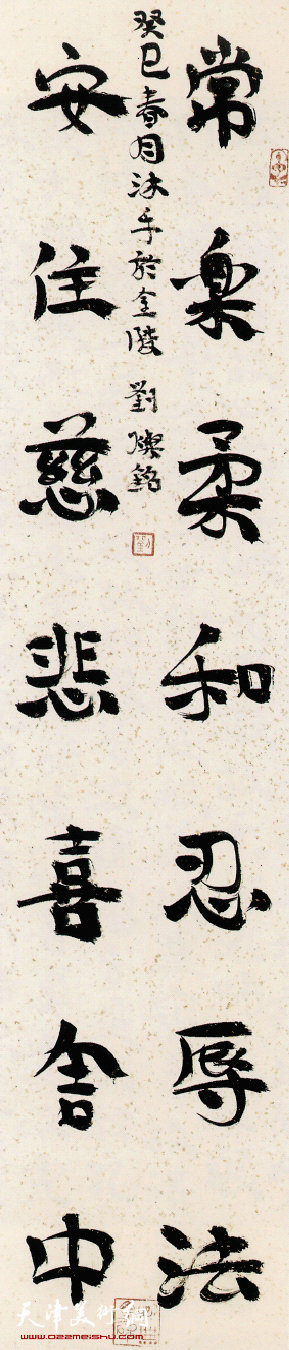 常樂柔和忍辱法
安住慈悲喜舍中
癸巳春月沐手於金陵 劉燦銘
天津美術網
www.022meishu.com